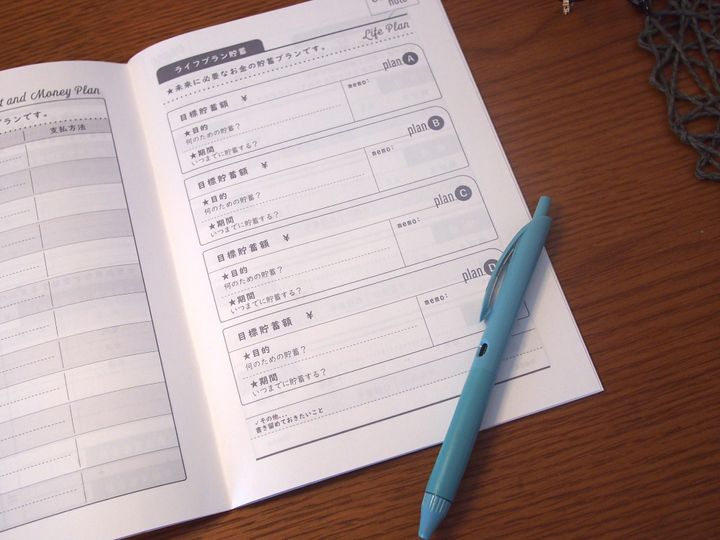 and Money Plan
プランです。
支払方法
note
Life Plan
ライフプラン貯蓄
★未来に必要なお金の貯蓄プランです。
plan A
目標貯蓄額 ¥
memo:
★目的
何のための貯蓄？
★期間
いつまでに貯蓄する？
plan B
目標貯蓄額 ¥
memo:
★目的
何のための貯蓄？
★期間
いつまでに貯蓄する？
plan C
目標貯蓄額 ¥
memo:
★目的
何のための貯蓄？
★期間
いつまでに貯蓄する？
plan D
目標貯蓄額 ¥
memo:
★目的
何のための貯蓄？
★期間
いつまでに貯蓄する？
✓その他...
書き留めておきたいこと